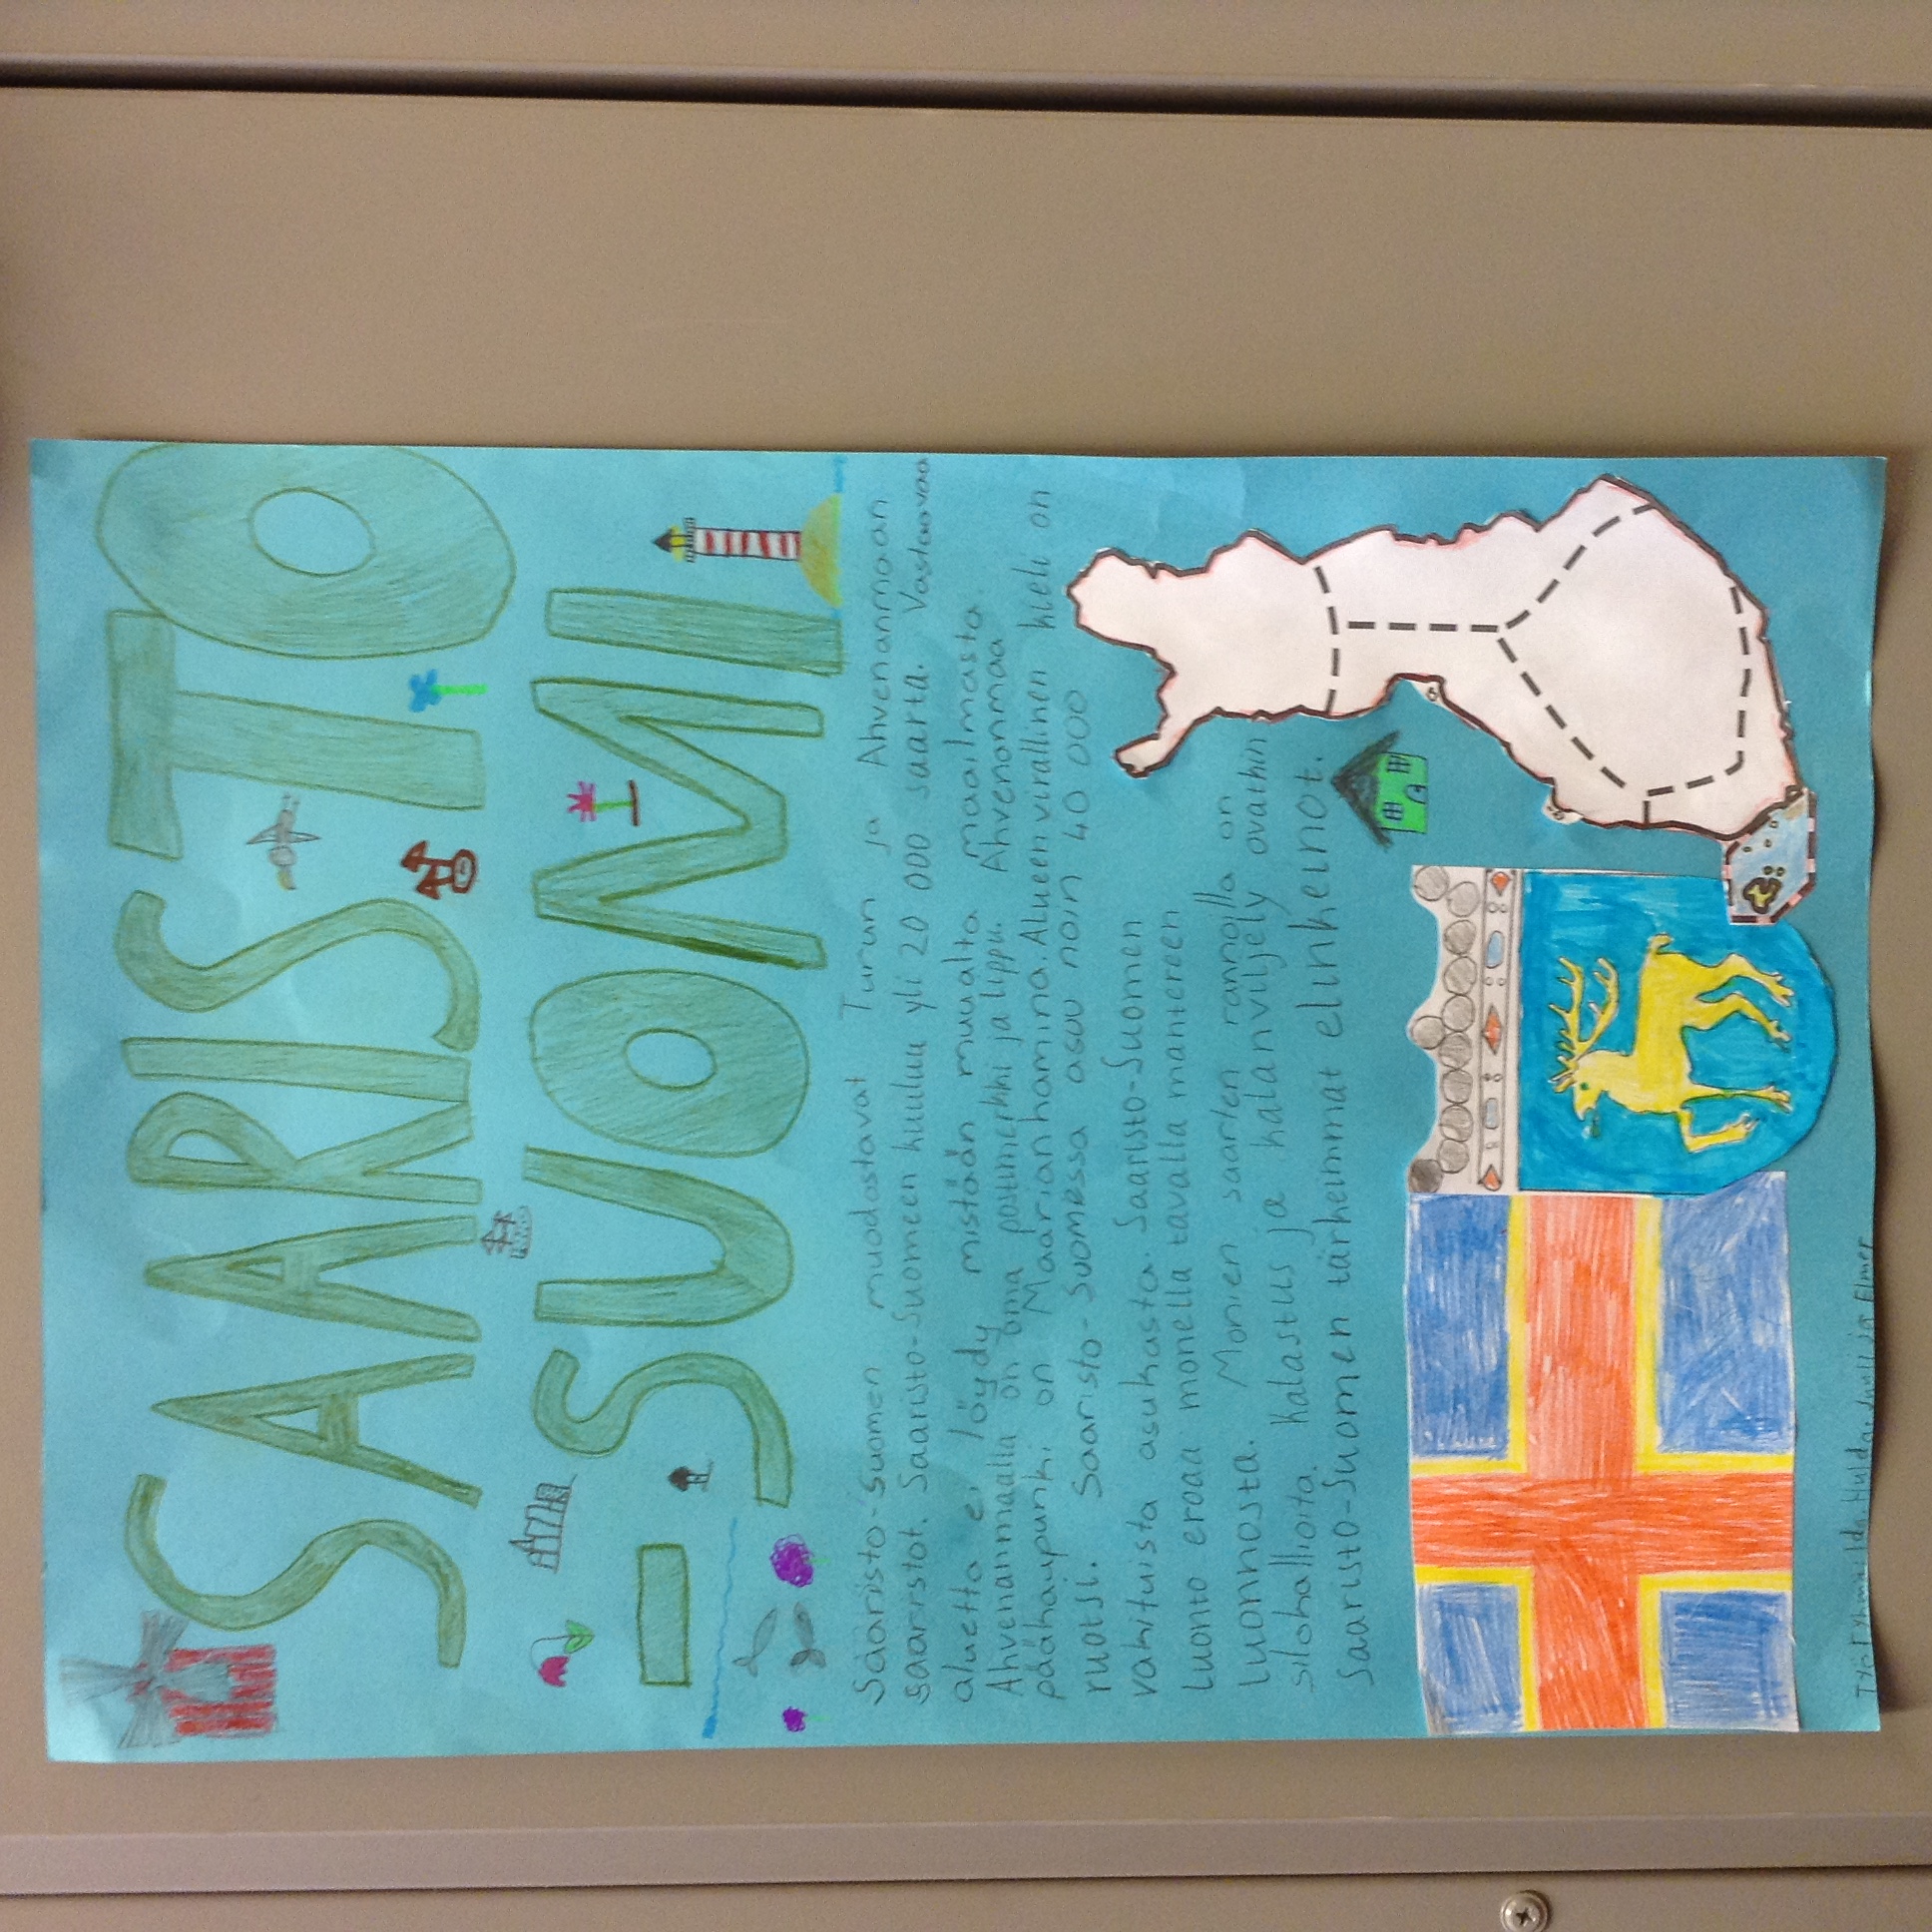 SAARISTO
-SUOMI
Saaristo-Suomen muodostavat Turun ja Ahvenanmaan
saaristot. Saaristo-Suomeen kuuluu yli 20 000 saarta. Vastaavaa
aluetta ei löydy mistään muualta maailmasta.
Ahvenanmaalla on oma postimerkki ja lippu. Ahvenanmaa
pääkaupunki on Maarianhamina. Alueen virallinen kieli on
ruotsi. Saaristo-Suomessa asuu noin 40 000
vakituista asukasta. Saaristo-Suomen
luonto eroaa monella tavalla mantereen
luonnosta. Monien saarten rannoilla on
silokallioita. kalastus ja kalanviljely ovathin
Saaristo-Suomen tärkeimmät elinkeinot.
Hulda
ja Elmer